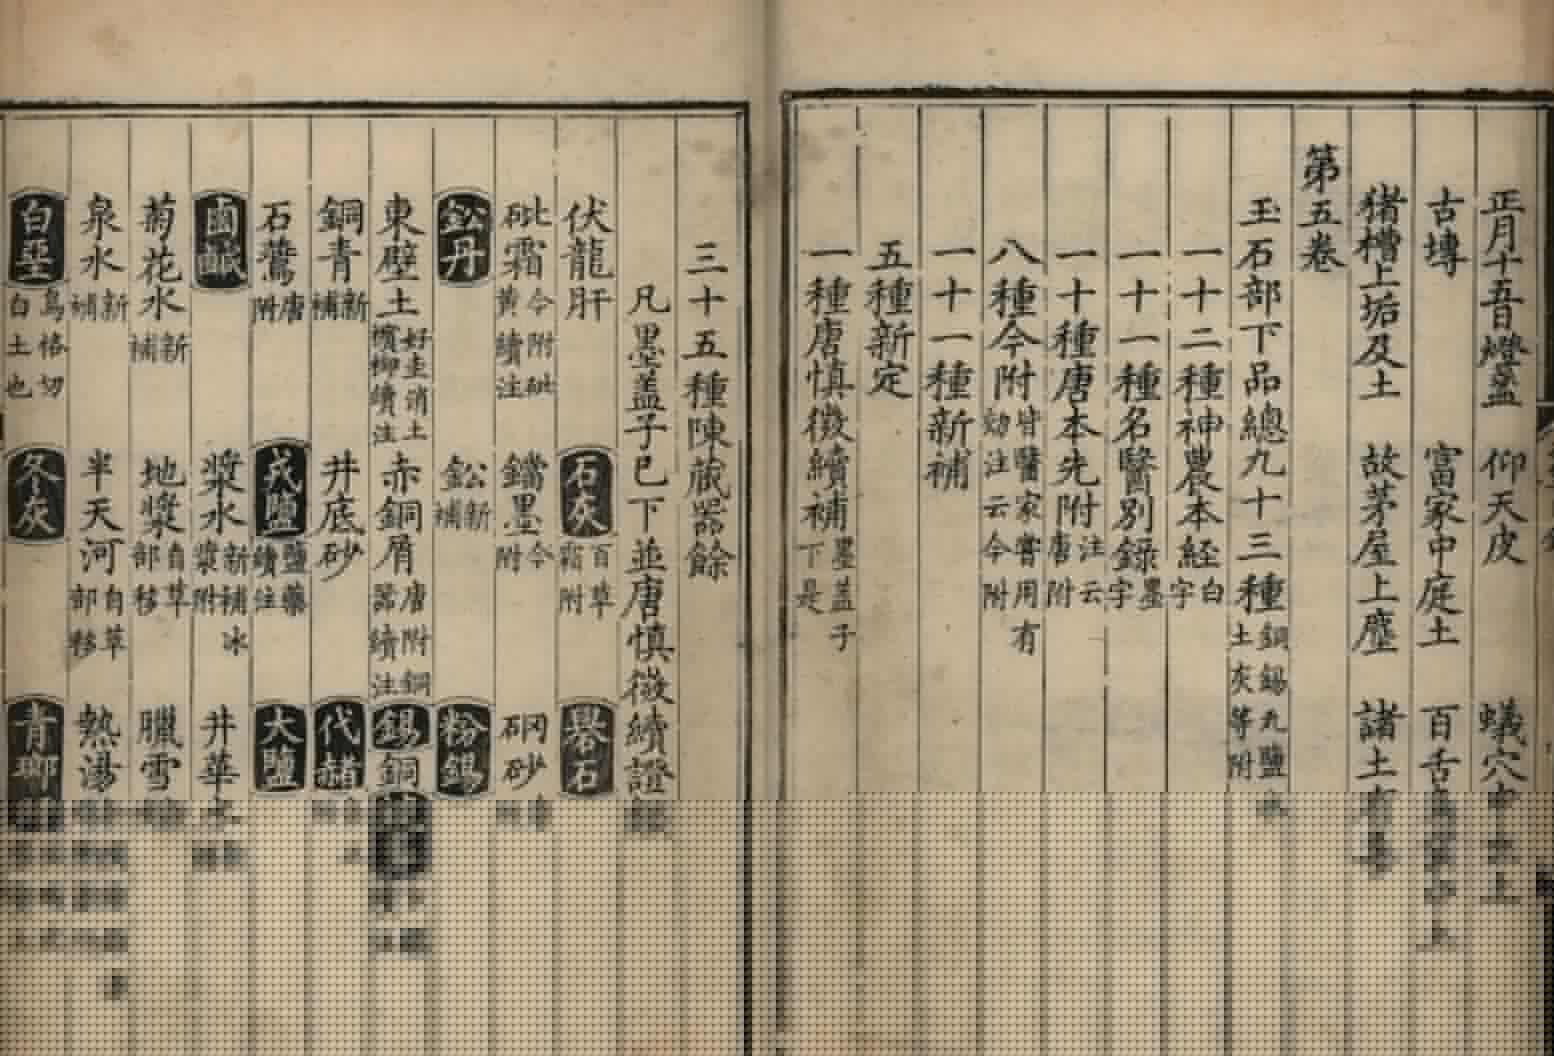 正月十五日燈盞 仰天皮 蟻穴
古塼 富家中庭土 百舌
猪槽上垢及土 故茅屋上塵 諸土
第五卷
玉石部下品總九十三種銅錫丸鹽土灰等附
一十二種神農本経白字
一十一種名醫別錄墨字
一十種唐本先附注云唐附
八種今附皆醫家嘗用有効注云今附
一十一種新補
五種新定
一種唐慎微續補墨盖子下是
三十五種陳藏器餘
凡墨盖子已下並唐慎微續證
伏龍肝 石灰百草霜附 礜石
砒霜今附砒黄續注 鐺墨今附 硇砂
鈆丹 鈆新補 粉錫
東壁土好圭消土檳榔續注 赤銅屑唐附銅器續注 錫銅
銅青新補 井底砂 代赭
石鷰唐附 戎鹽鹽藥續注 大鹽
鹵鹹 漿水新補冰漿附 井華
菊花水新補 地漿自草部移 臘雪
泉水新補 半天河自草部移 熱湯
白堊烏恪切白土也 冬灰 青琅